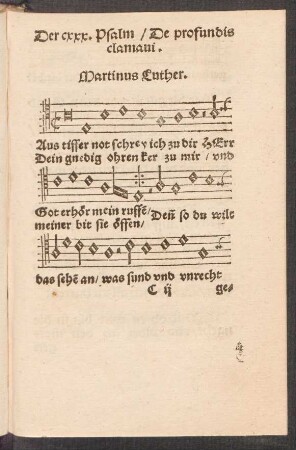 Der cxxx. Psalm / De profundis
clamaui.
Martinus Luther.
Aus tiffer not schrey ich zu dir HErr
Dein gnedig ohren ker zu mir / vnd
Got erhör mein ruffē / Deñ so du wilt
meiner bit sie öffen /
das sehē an / was sund vnd vnrecht
C ij
ge-